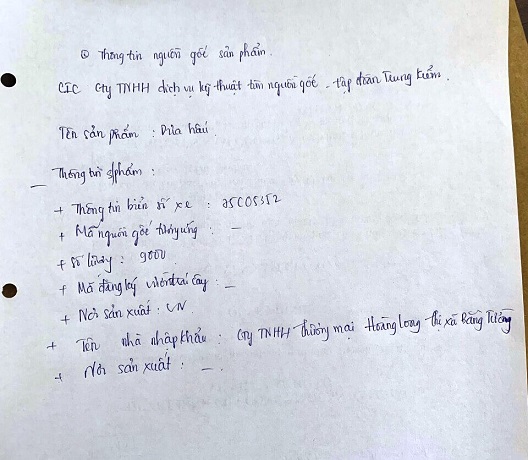 ① Thông tin nguồn gốc sản phẩm.
CIC Cty TNHH dịch vụ kỹ thuật tìm nguồn gốc - tập đoàn Trung Kiểm.
Tên sản phẩm : Dưa hấu.
- Thông tin s/phẩm :
+ Thông tin biển số xe : 25C05352
+ Mã nguồn gốc tương ứng : -
+ Số lượng : 9000
+ Mã đăng ký vườn trái cây : -
+ Nơi sản xuất : VN
+ Tên nhà nhập khẩu : Cty TNHH thương mại Hoàng Long thị xã Bằng Tường
+ Nơi sản xuất : - .